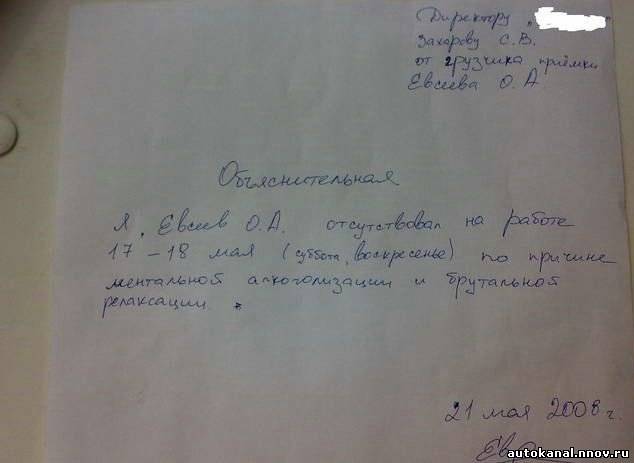 Директору „
Захарову С.В.
от грузчика приёмки
Евсеева О.А
Объяснительная
Я, Евсеев О.А. отсутствовал на работе
17 – 18 мая (суббота, воскресенье) по причине
ментальной алкоголизации и брутальной
релаксации.
21 мая 2008 г.
autokanal.nnov.ru